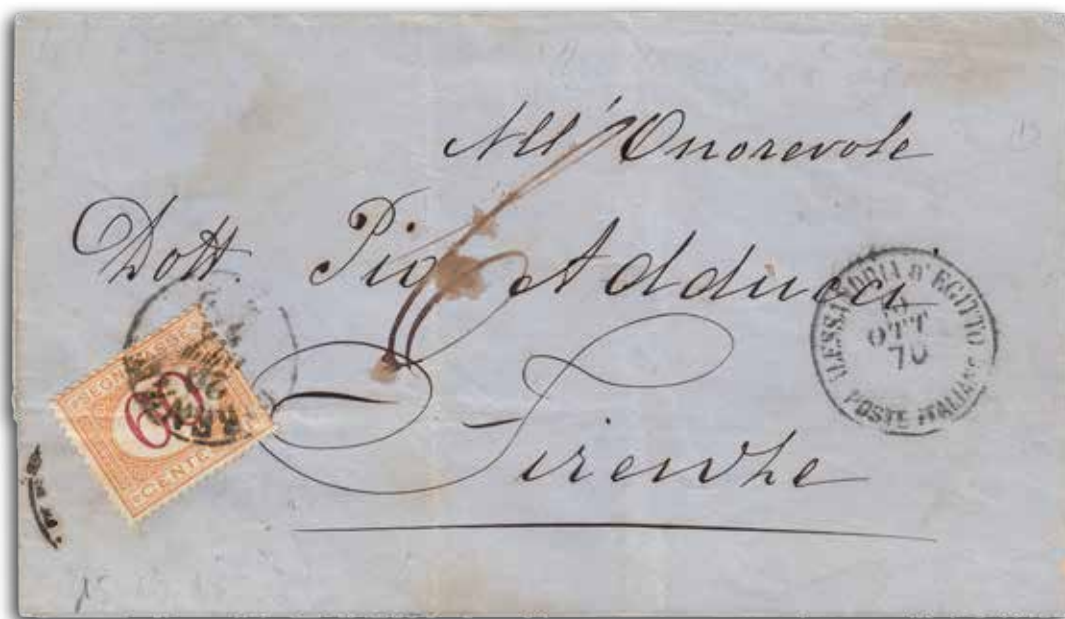 All' Onorevole
Dott. Pio Adducci
Firenze
ALESSANDRIA D'EGITTO
OTT
70
POSTE ITALIANE
60
CENTE